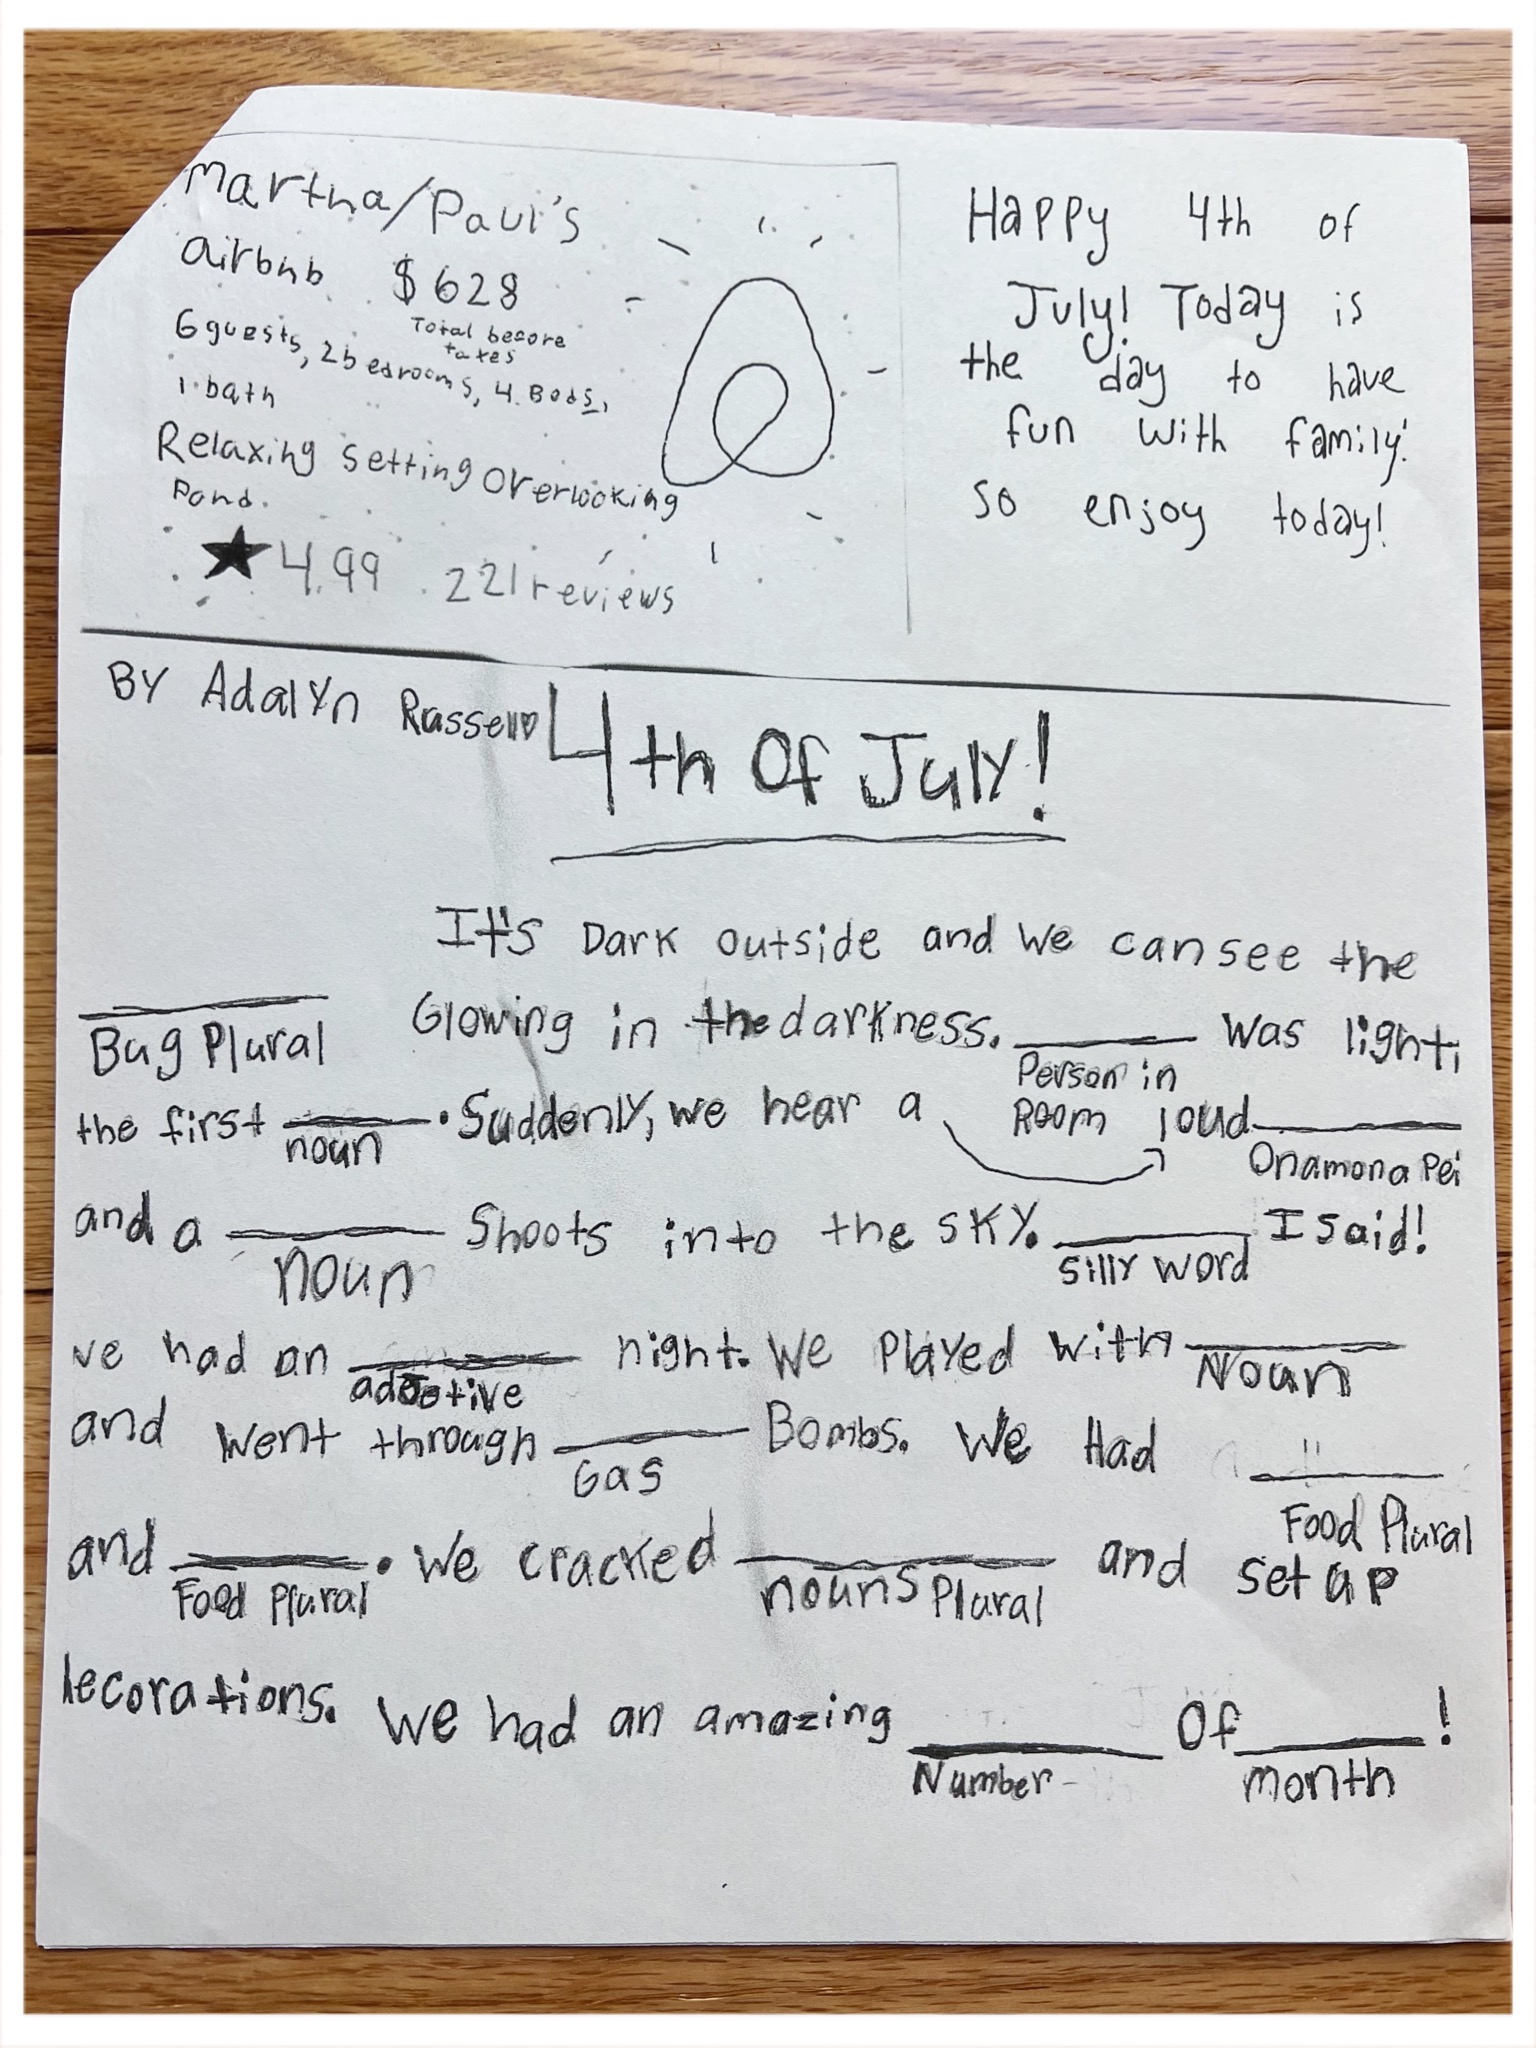 Martha/Paul's
airbnb $628
Total before
taxes
6 guests, 2 bedrooms, 4 Beds,
1 bath
Relaxing setting overlooking
Pond.
★ 4.99 221 reviews
Happy 4th of
July! Today is
the day to have
fun with family!
so enjoy today!
BY Adalyn Russell♡
4th Of July!
It's Dark outside and We can see the
____ Glowing in the darkness. ____ was light,
Bug Plural Person in
Room
the first ____. Suddenly, we hear a loud ____
noun Onamona Pei
and a ____ Shoots into the sky. ____ I said!
noun Silly Word
we had an ____ night. We Played with ____
adjective Noun
and went through ____ Bombs. We Had ____
Gas Food Plural
and ____. We cracked ____ and set up
Food Plural nouns Plural
decorations. We had an amazing ____ Of ____!
Number month